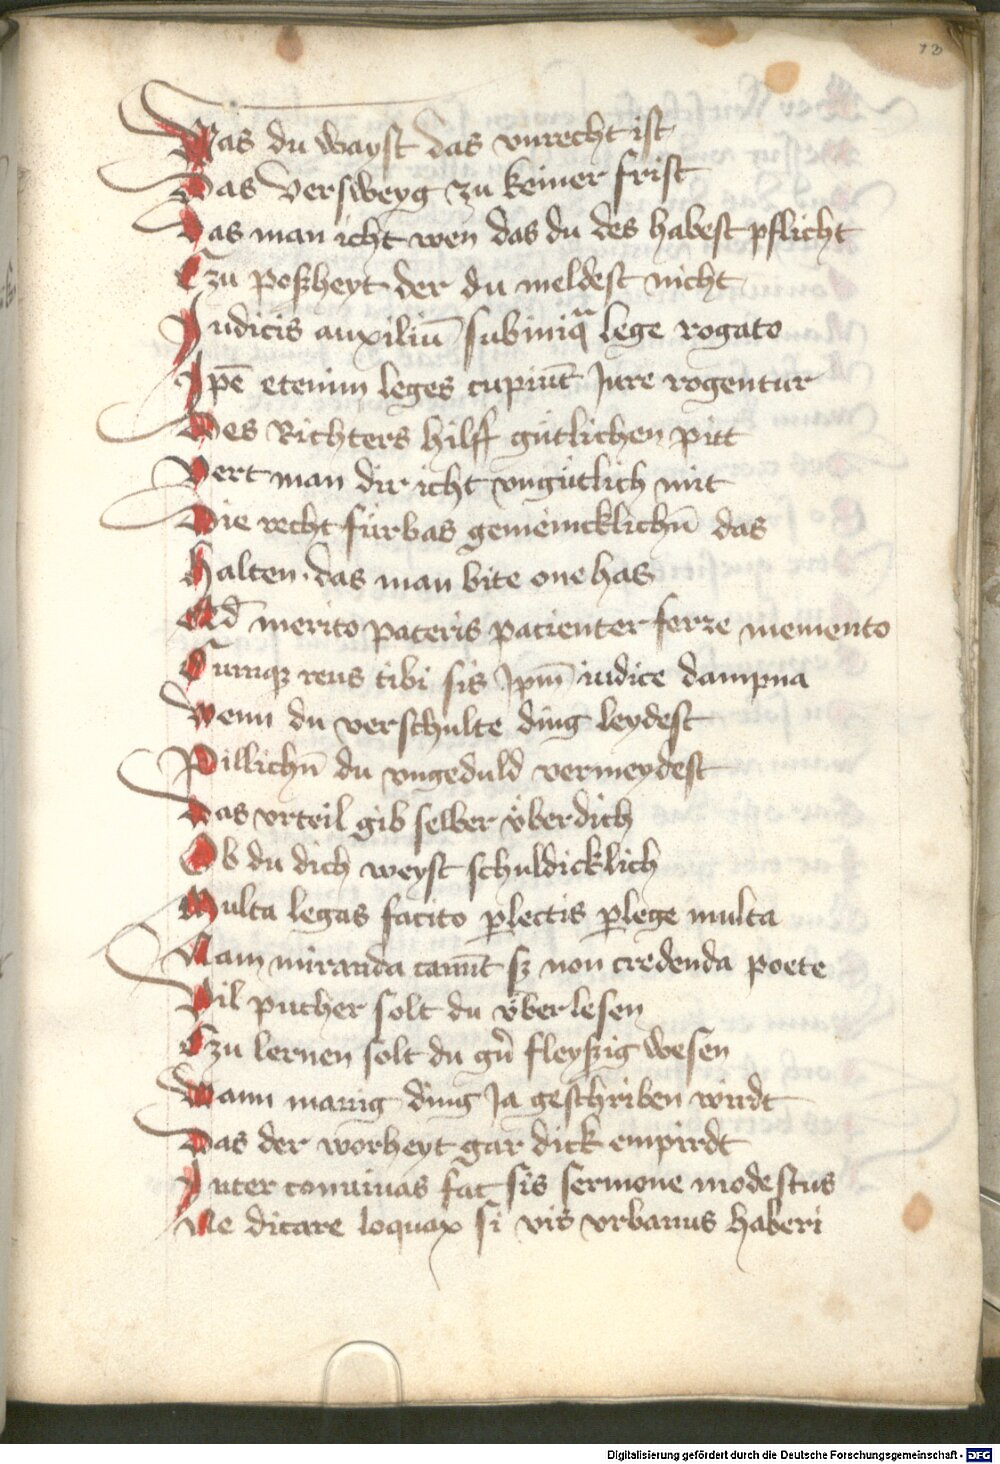 13
Was du wayst das vnrecht ist
Das versweyg zu keiner frist
Das man icht wen das du des habest pflicht
Czu poßheyt der du meldest nicht
Judicis auxiliū sub iniqᷓ lege rogato
Ipē etenim leges cupiūt Jure rogentur
Des Richters hilff gütlichen pitt
Vert man dir icht vngütlich mit
Die recht fürbas gemeincklichn̄ das
Halten · das man bite one has
Qd̄ merito pateris pacienter ferre memento
Cumqꝫ reus tibi sis Jpm̄ iudice dampna
Wenn du verschulte ding leydest
Pillichn̄ du vngeduld vermeydest
Das vrteil gib selber vber dich
Ob du dich weyst schuldicklich
Multa legas facito ꝑlectis ꝑlege multa
Nam miranda canūt sꝫ non credenda poete
Vil pucher solt du vber lesen
Czu lernen solt du gut fleyßig wesen
Wann manig ding Ja geschriben wirdt
Das der worheyt gar dick empirdt
Inter conuiuas fac sis sermone modestus
Ne dicare loquax si vis vrbanus haberi
Digitalisierung gefördert durch die Deutsche Forschungsgemeinschaft - DFG